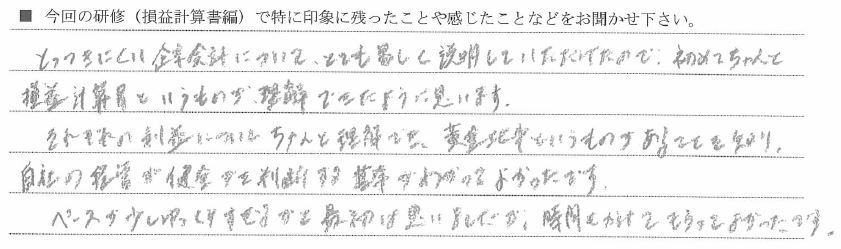 ■ 今回の研修（損益計算書編）で特に印象に残ったことや感じたことなどをお聞かせ下さい。
とっつきにくい企業会計について、とても易しく説明していただけたので、初めてちゃんと
損益計算書というものが理解できたように思います。
それぞれの利益についてちゃんと理解でき、黄金比率というものがあることを知り、
自社の経営が健全かを判断する基準がわかってよかったです。
ペースが少しゆっくりすぎるかと最初は思いましたが、時間をかけてもらってよかったです。